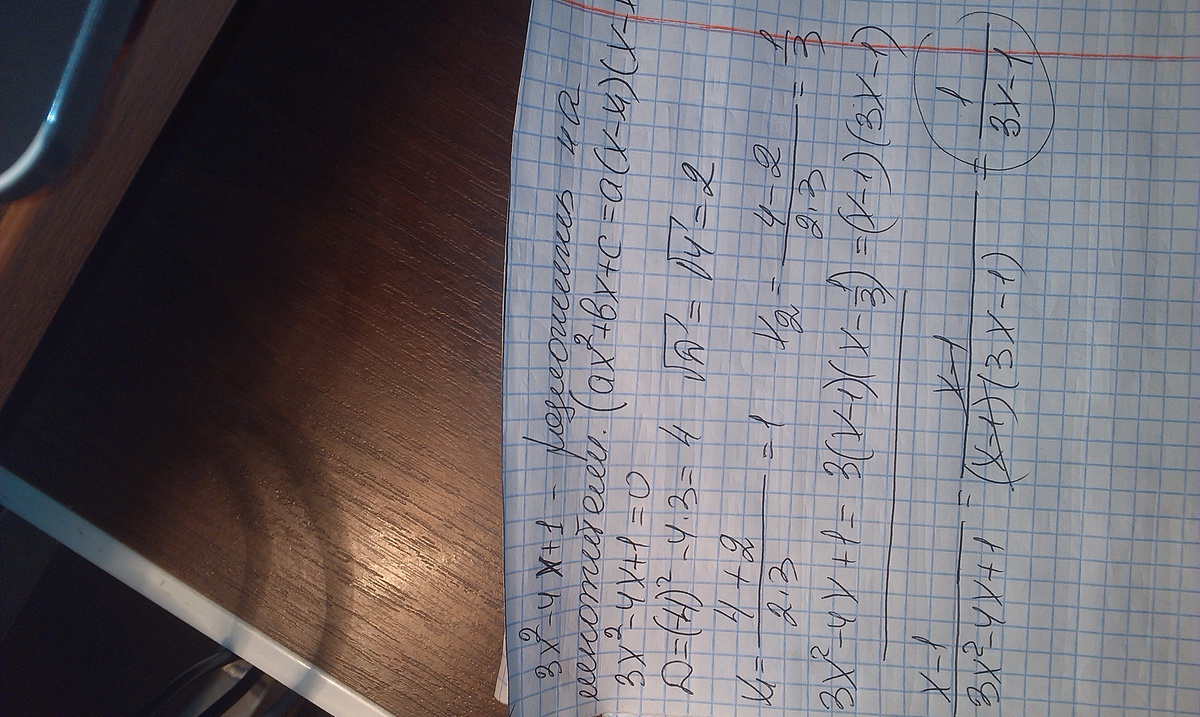 3x²-4x+1 - разложить на
множителей. (ax²+bx+c=a(x-x₁)(x-
3x²-4x+1=0
D=(-4)²-4·3=4 √D=√4=2
x₁=(4+2)/(2·3)=1 x₂=(4-2)/(2·3)=1/3
3x²-4x+1=3(x-1)(x-1/3)=(x-1)(3x-1)
(x-1)/(3x²-4x+1)=(x-1)/((x-1)(3x-1))=1/(3x-1)